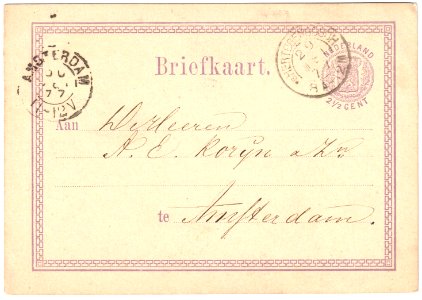 AMSTERDAM
Briefkaart.
NEDERLAND
2½ CENT
Aan
De Heeren
A. E. Koryn & Zn
te Amsterdam.